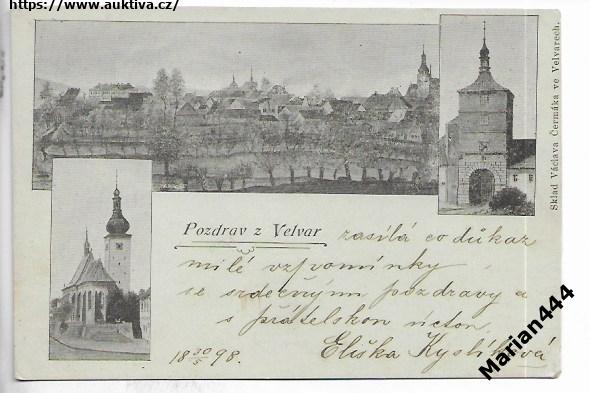 https://www.auktiva.cz/
Sklad Václava Čermáka ve Velvarech.
Pozdrav z Velvar zasílá co důkaz
milé vzpomínky
se srdečnými pozdravy a
s přátelskou úctou
18 30/5 98. Eliška Kystíková
Marian444